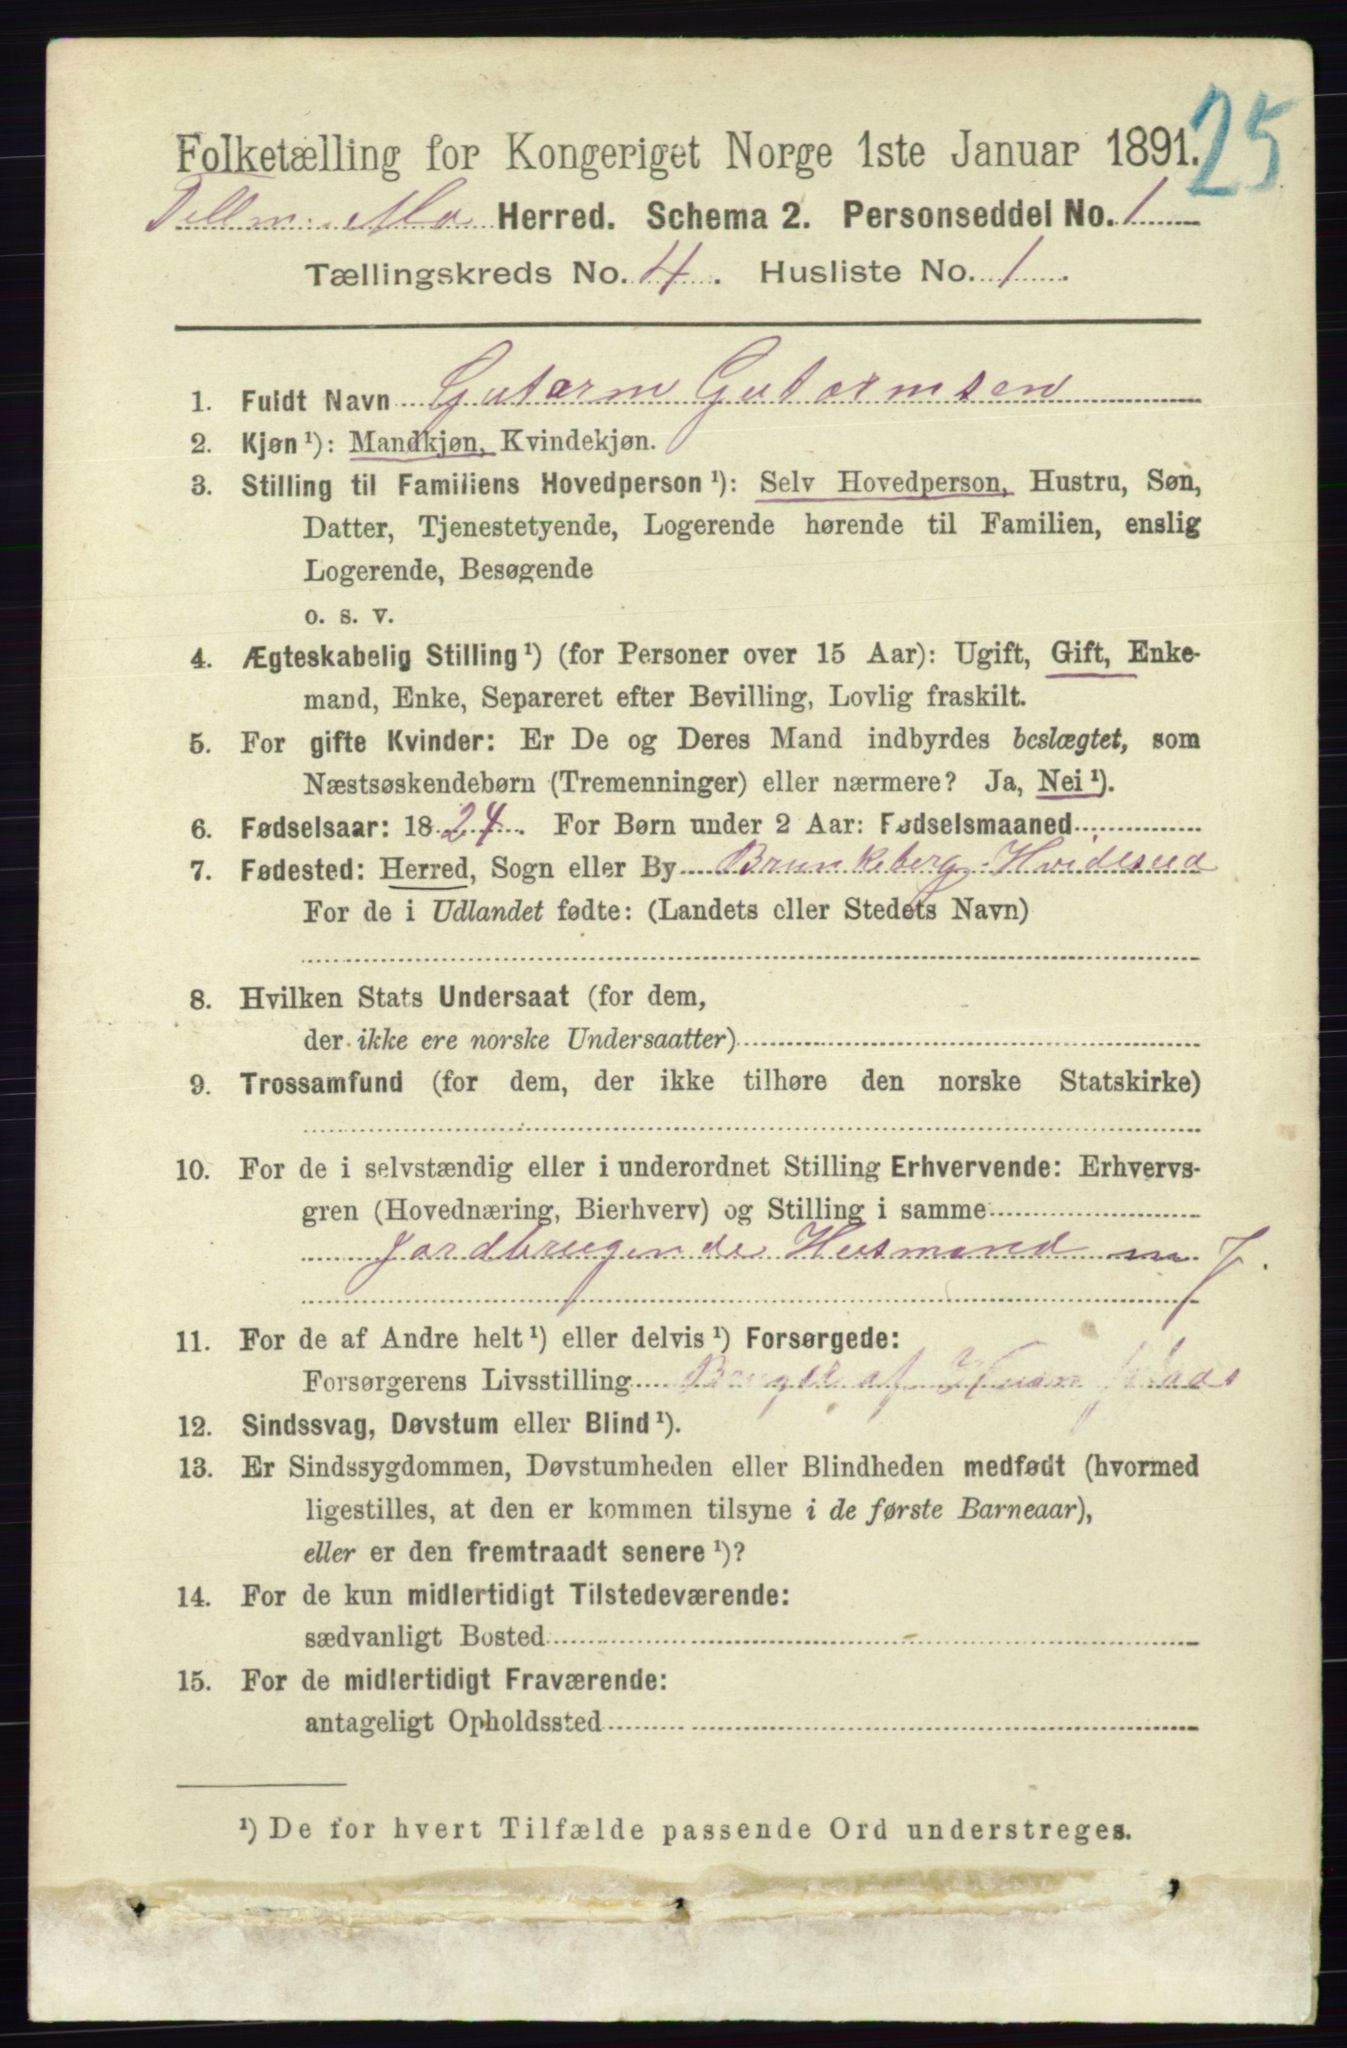 25
Folketælling for Kongeriget Norge 1ste Januar 1891.
Mo Herred. Schema 2. Personseddel No. 1
Tællingskreds No. 4. Husliste No. 1.
1. Fuldt Navn Gutorm Gutormsen
2. Kjøn¹): Mandkjøn, Kvindekjøn.
3. Stilling til Familiens Hovedperson¹): Selv Hovedperson, Hustru, Søn,
Datter, Tjenestetyende, Logerende hørende til Familien, enslig
Logerende, Besøgende
o. s. v.
4. Ægteskabelig Stilling¹) (for Personer over 15 Aar): Ugift, Gift, Enke-
mand, Enke, Separeret efter Bevilling, Lovlig fraskilt.
5. For gifte Kvinder: Er De og Deres Mand indbyrdes beslægtet, som
Næstsøskendebørn (Tremenninger) eller nærmere? Ja, Nei¹).
6. Fødselsaar: 1824. For Børn under 2 Aar: Fødselsmaaned
7. Fødested: Herred, Sogn eller By Brunkeberg Hvideseid
For de i Udlandet fødte: (Landets eller Stedets Navn)
8. Hvilken Stats Undersaat (for dem,
der ikke ere norske Undersaatter)
9. Trossamfund (for dem, der ikke tilhøre den norske Statskirke)
10. For de i selvstændig eller i underordnet Stilling Erhvervende: Erhvervs-
gren (Hovednæring, Bierhverv) og Stilling i samme
Jordbrugende Husmand m J.
11. For de af Andre helt¹) eller delvis¹) Forsørgede:
Forsørgerens Livsstilling Bruger af Husm plads
12. Sindssvag, Døvstum eller Blind¹).
13. Er Sindssygdommen, Døvstumheden eller Blindheden medfødt (hvormed
ligestilles, at den er kommen tilsyne i de første Barneaar),
eller er den fremtraadt senere¹)?
14. For de kun midlertidigt Tilstedeværende:
sædvanligt Bosted
15. For de midlertidigt Fraværende:
antageligt Opholdssted
¹) De for hvert Tilfælde passende Ord understreges.